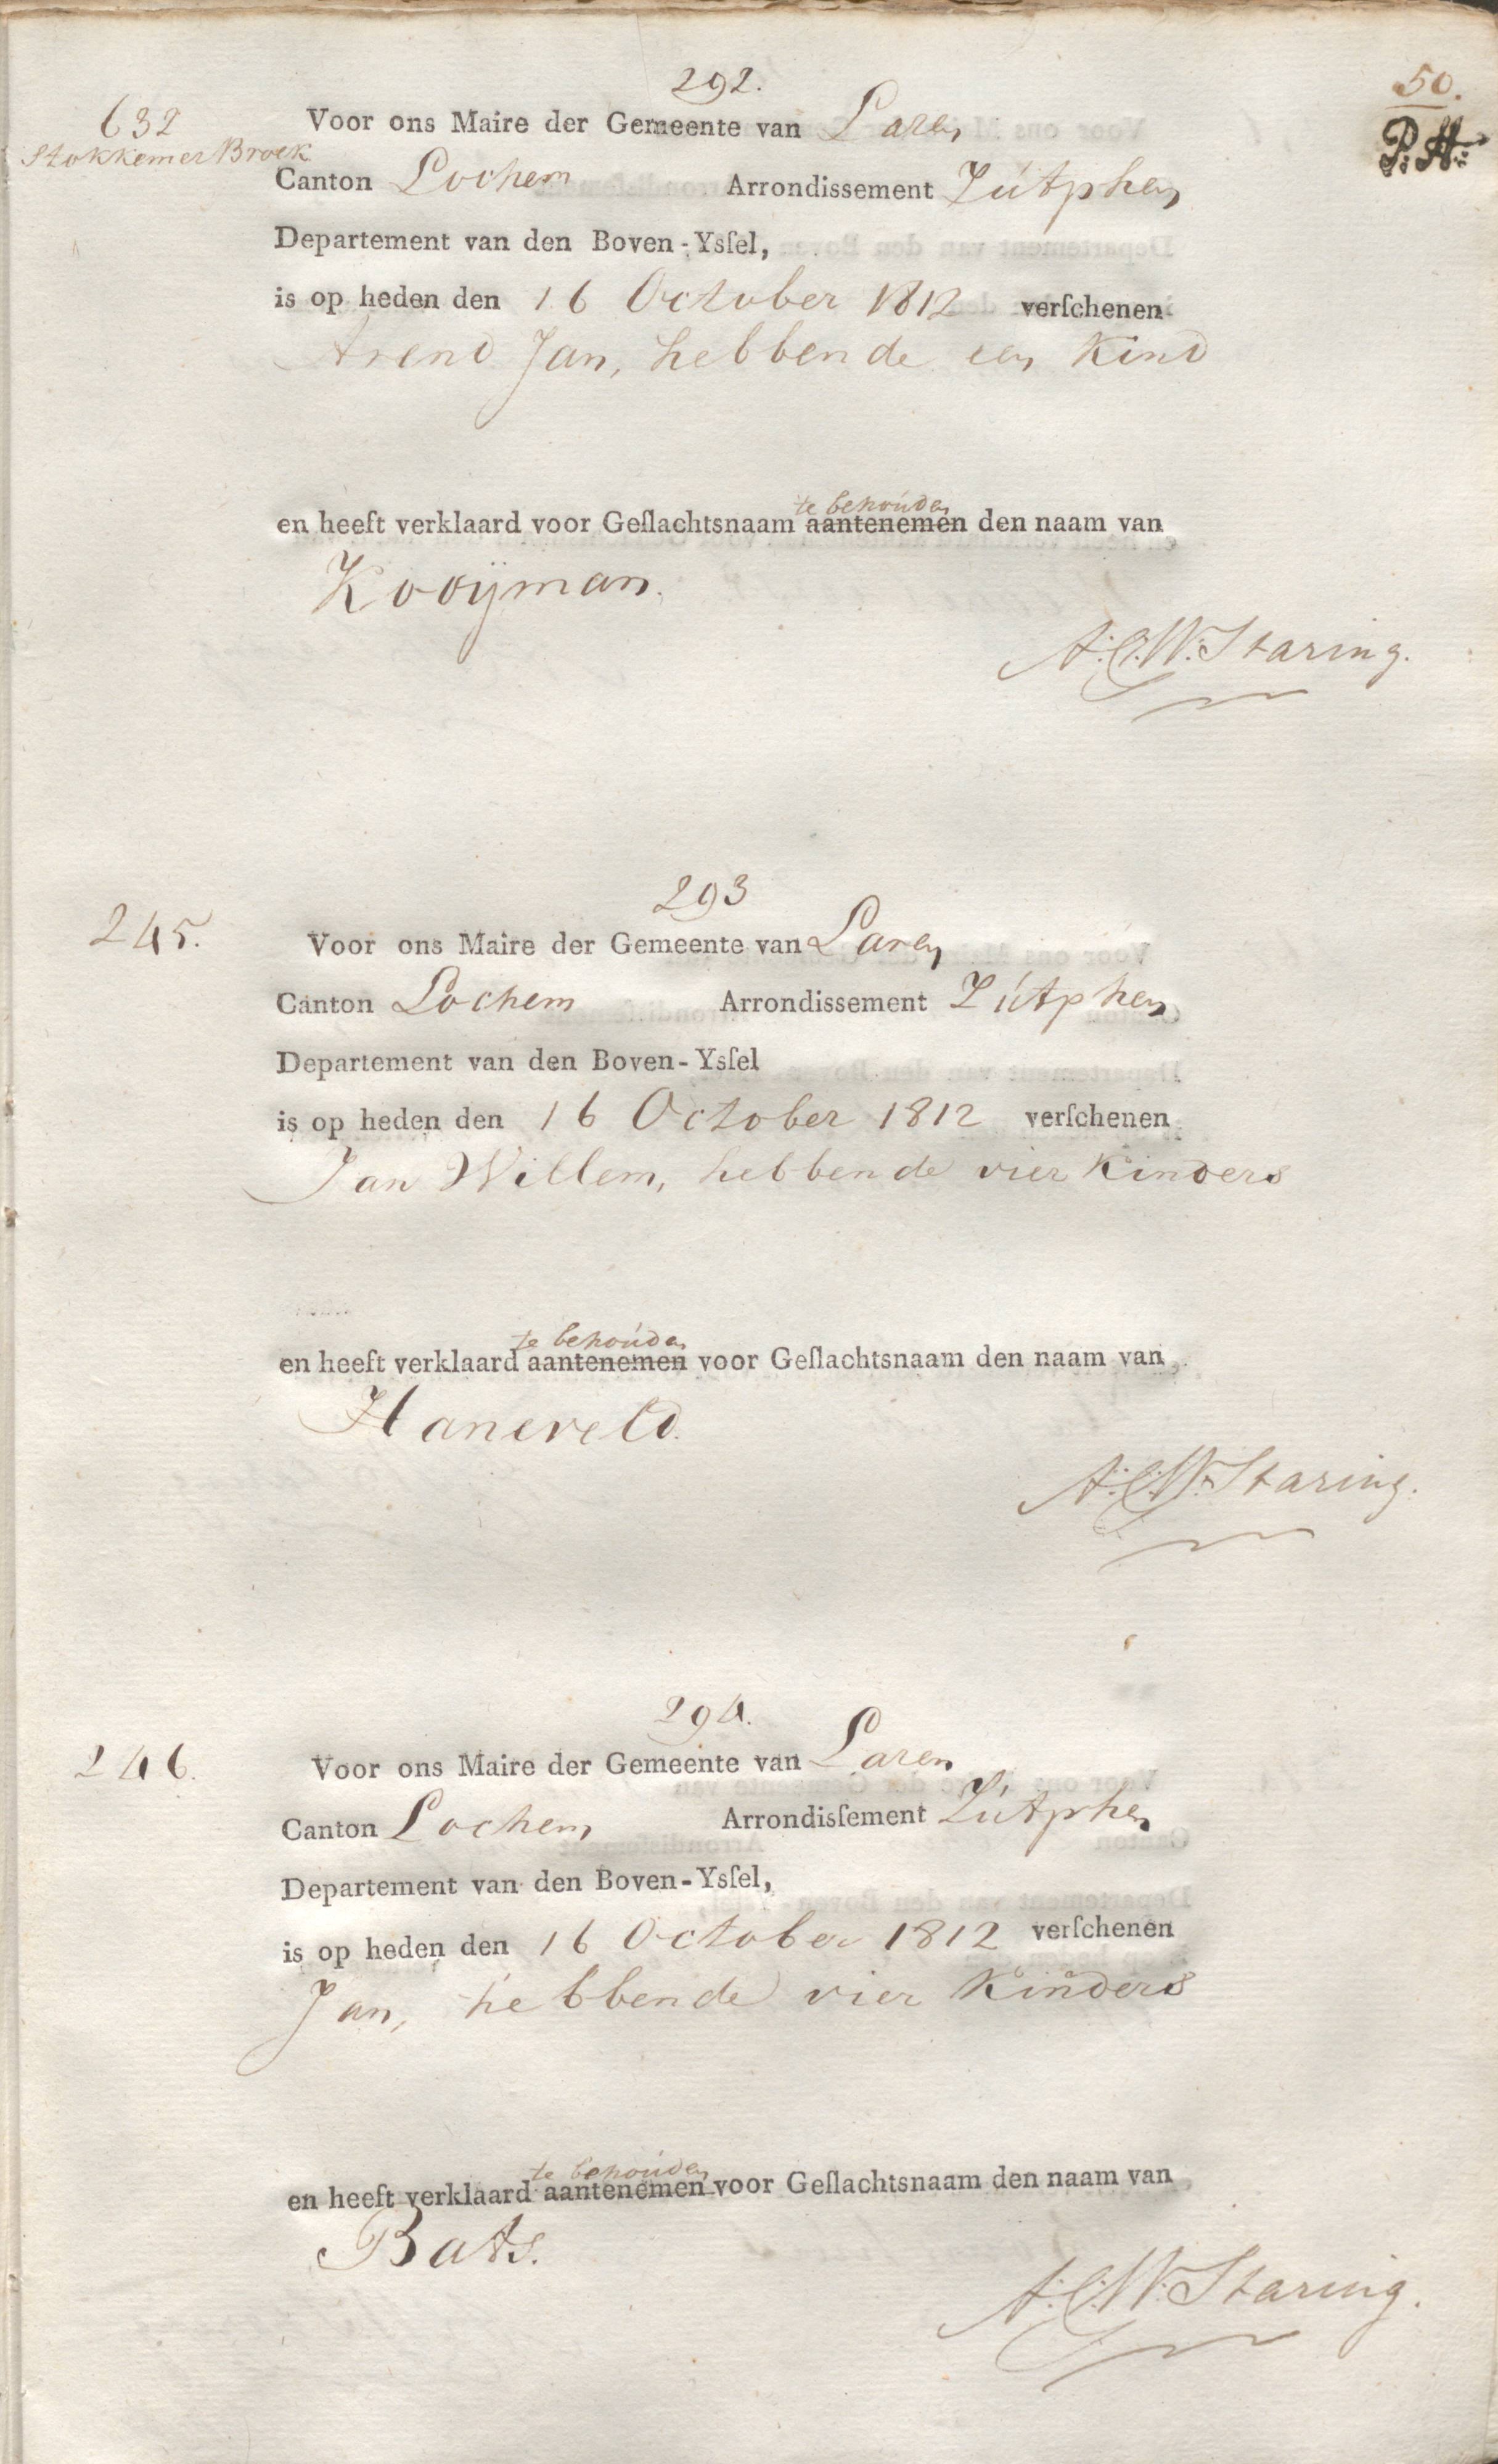 50.
P. H:
292.
632
Stokkemer Broek
Voor ons Maire der Gemeente van Laren
Canton Lochem Arrondissement Zútphen
Departement van den Boven-Ysſel,
is op heden den 16 October 1812 verſchenen
Arend Jan, hebbende een Kind
te behoúden
en heeft verklaard voor Geſlachtsnaam aantenemen den naam van
Kooijman.
A: C: W: Staring.
293
245.
Voor ons Maire der Gemeente van Laren
Canton Lochem Arrondissement Zútphen
Departement van den Boven-Ysſel
is op heden den 16 October 1812 verſchenen
Jan Willem, hebbende vier Kinders
te behoúden
en heeft verklaard aantenemen voor Geſlachtsnaam den naam van
Haneveld.
A: C: W: Staring.
294.
246.
Voor ons Maire der Gemeente van Laren
Canton Lochem Arrondisſement Zútphen
Departement van den Boven-Ysſel,
is op heden den 16 October 1812 verſchenen
Jan, hebbende vier Kinders
te behoúden
en heeft verklaard aantenemen voor Geſlachtsnaam den naam van
Bats.
A: C: W: Staring.